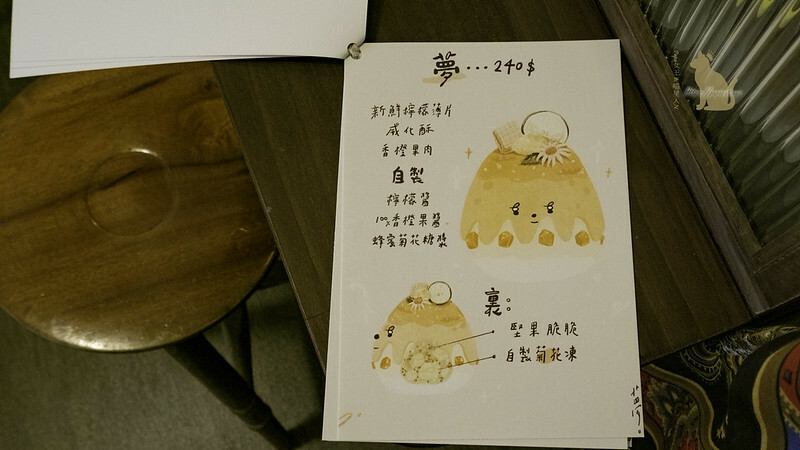 夢...240$
新鮮檸檬薄片
威化酥
香橙果肉
自製
檸檬醬
100%香橙果醬
蜂蜜菊花糖漿
裏:
堅果脆脆
自製菊花凍